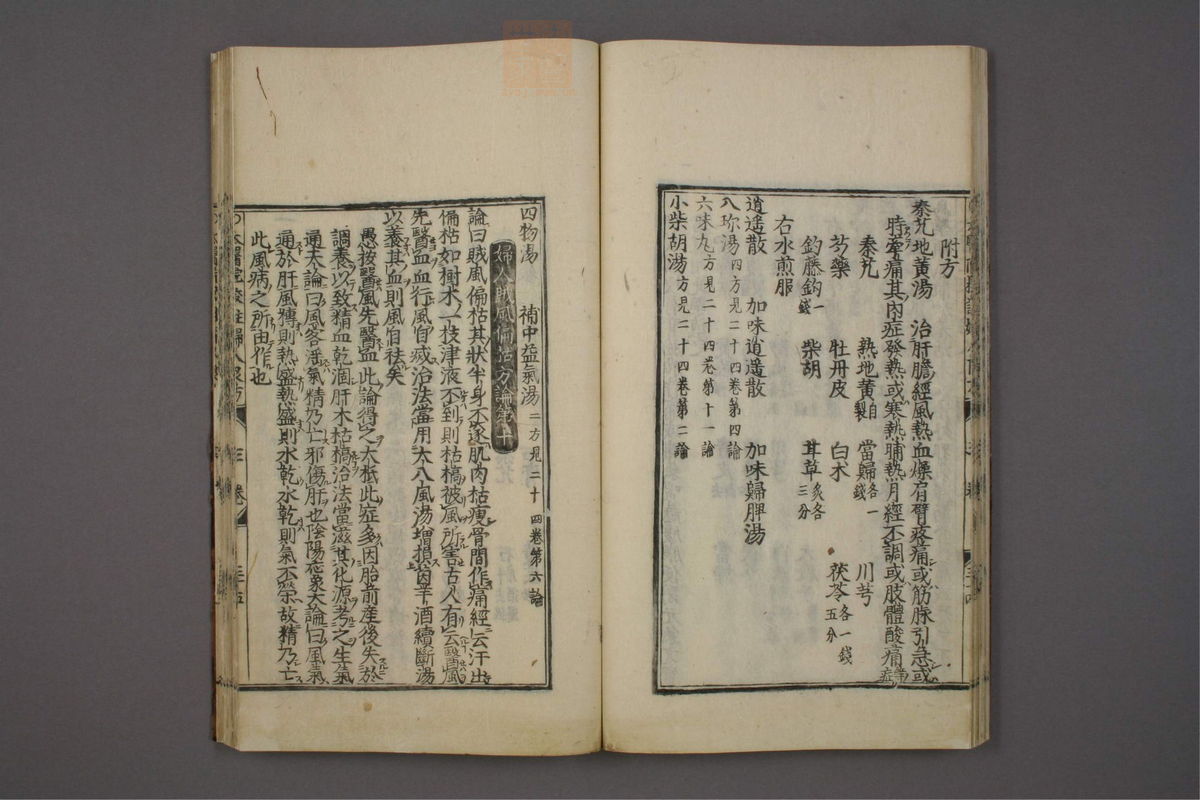 附方
秦艽地黄湯　治肝膽經風熱血燥肩臂疼痛或筋脉引急或
時牽痛其内症發熱或寒熱晡熱月經不調或肢體酸痛等症
秦艽　熟地黄自製　當歸各一錢　川芎
芍藥　牡丹皮　白朮　茯苓各一錢五分
釣藤鈎一錢　柴胡　甘草炙各三分
右水煎服
逍遥散　加味逍遥散　加味歸脾湯
八珎湯四方見二十四卷第四論
六味丸方見二十四卷第十一論
小柴胡湯方見二十四卷第二論
四物湯　補中益氣湯二方見二十四卷第六論
婦人賊風偏枯方論第十
論曰賊風偏枯其狀半身不遂肌肉枯痩骨間作痛經云汗出
偏枯如樹木一枝津液不到則枯槁被風所害古人有云醫風
先醫血血行風自滅治法當用大八風湯増損茵芋酒續斷湯
以養其血則風自祛矣
愚按醫風先醫血此論得之大柢此症多因胎前産後失於
調養以致精血乾涸肝木枯槁治法當滋其化源考之生氣
通天論曰風客淫氣精乃亡邪傷肝也陰陽應象大論曰風氣
通於肝風搏則熱盛熱盛則水乾水乾則氣不榮故精乃亡
此風病之所由作也
婦人良方
三卷